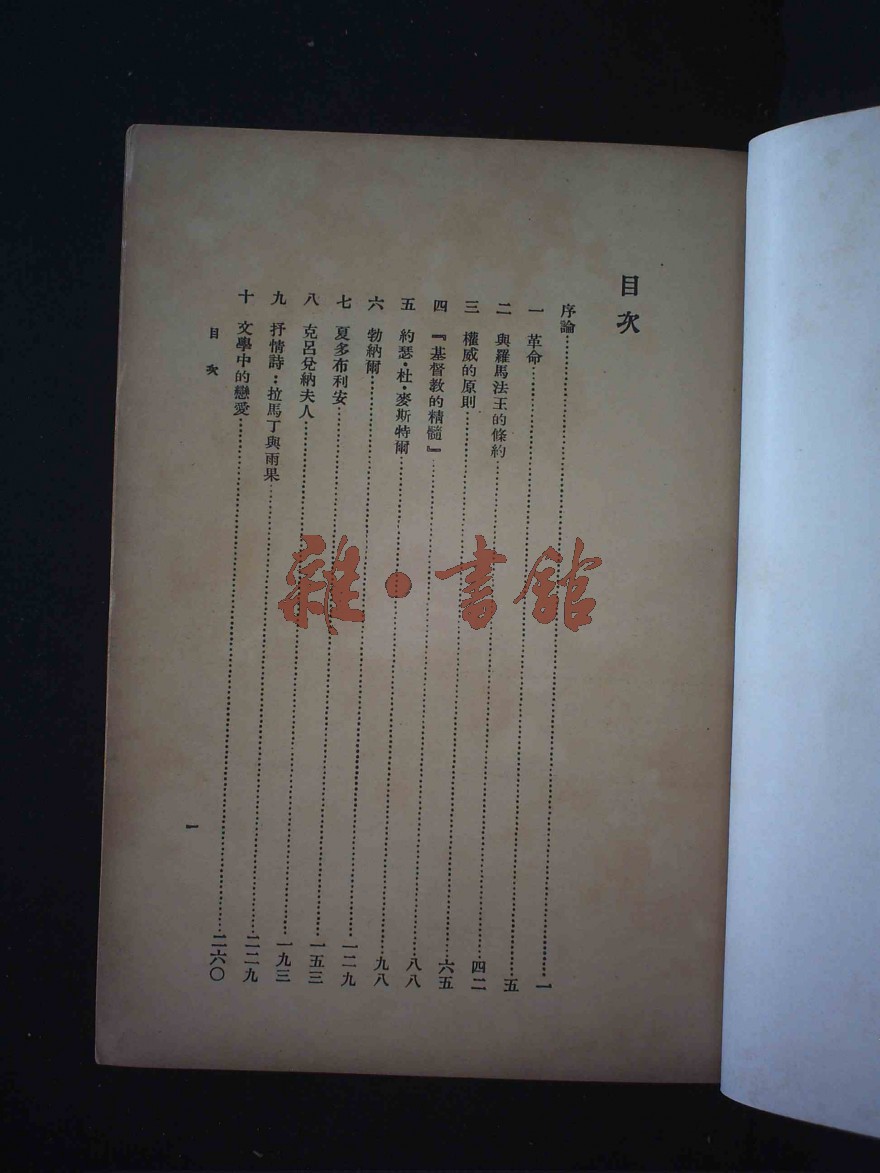 目次
序論……一
一 革命……五
二 與羅馬法王的條約……四二
三 權威的原則……六五
四 『基督教的精髓』……八八
五 約瑟·杜·麥斯特爾……九八
六 勃納爾……一二九
七 夏多布利安……一五三
八 克呂兌納夫人……一九三
九 抒情詩：拉馬丁與雨果……二二九
十 文學中的戀愛……二六〇
目次
一
雜·書館